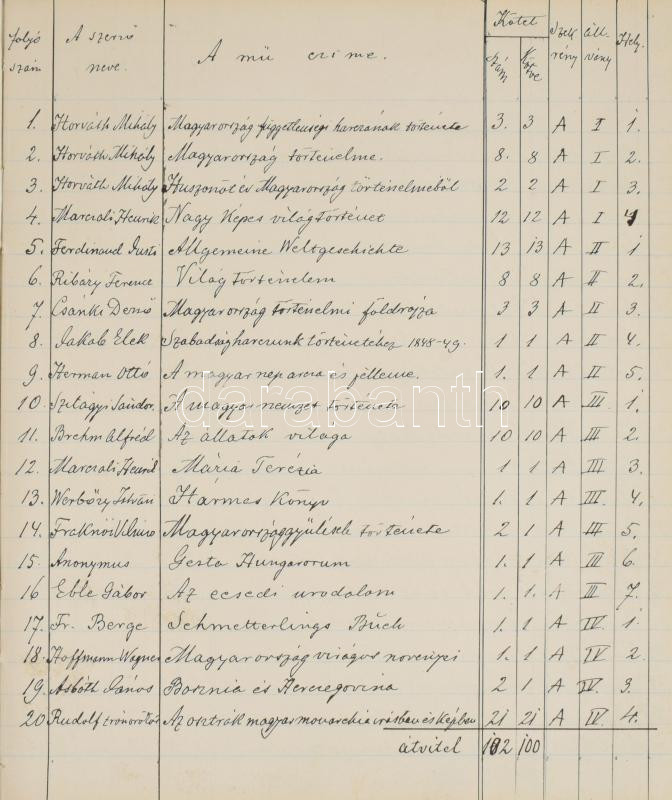 folyó szám | A szerző neve. | A mü czime. | Kötet szám | Kötve | Szekrény | állvány | Hely.
1. Horváth Mihály Magyarország függetlenségi harczának története 3. 3 A I 1.
2. Horváth Mihály Magyarország történelme. 8. 8 A I 2.
3. Horváth Mihály Huszonöt év Magyarország történelméből 2 2 A I 3.
4. Marczali Henrik Nagy Képes világtörténet 12 12 A I 4
5. Ferdinand Justi Allgemeine Weltgeschichte 13 13 A II 1
6. Ribáry Ferencz Világtörténelem 8 8 A II 2.
7. Csánki Dezső Magyarország történelmi földrajza 3 3 A II 3.
8. Jakab Elek Szabadságharczunk történetéhez 1848-49. 1 1 A II 4.
9. Herman Ottó A magyar nép arcza és jelleme. 1. 1 A II 5.
10. Szilágyi Sándor. A magyar nemzet története 10 10 A III 1.
11. Brehm Alfréd Az állatok világa 10 10 A III 2.
12. Marczali Henrik Mária Terézia 1 1 A III 3.
13. Werbőzy István Hármas Könyv 1. 1 A III. 4.
14. Fraknói Vilmos Magyar országgyülések története 2 1 A III 5.
15. Anonymus Gesta Hungarorum 1. 1 A III 6.
16 Eble Gábor Az ecsedi uradalom 1. 1. A III 7.
17. Fr. Berge Schmetterlings Buch 1. 1 A IV. 1.
18. Hoffmann-Wagner Magyarország virágos növényei 1. 1 A IV 2.
19. Asbóth János Bosznia és Herczegovina 2 1 A IV. 3.
20 Rudolf trónörökös Az osztrák magyar monarchia irásban és képben 21 21 A IV. 4.
átvitel 102 100
darabanth